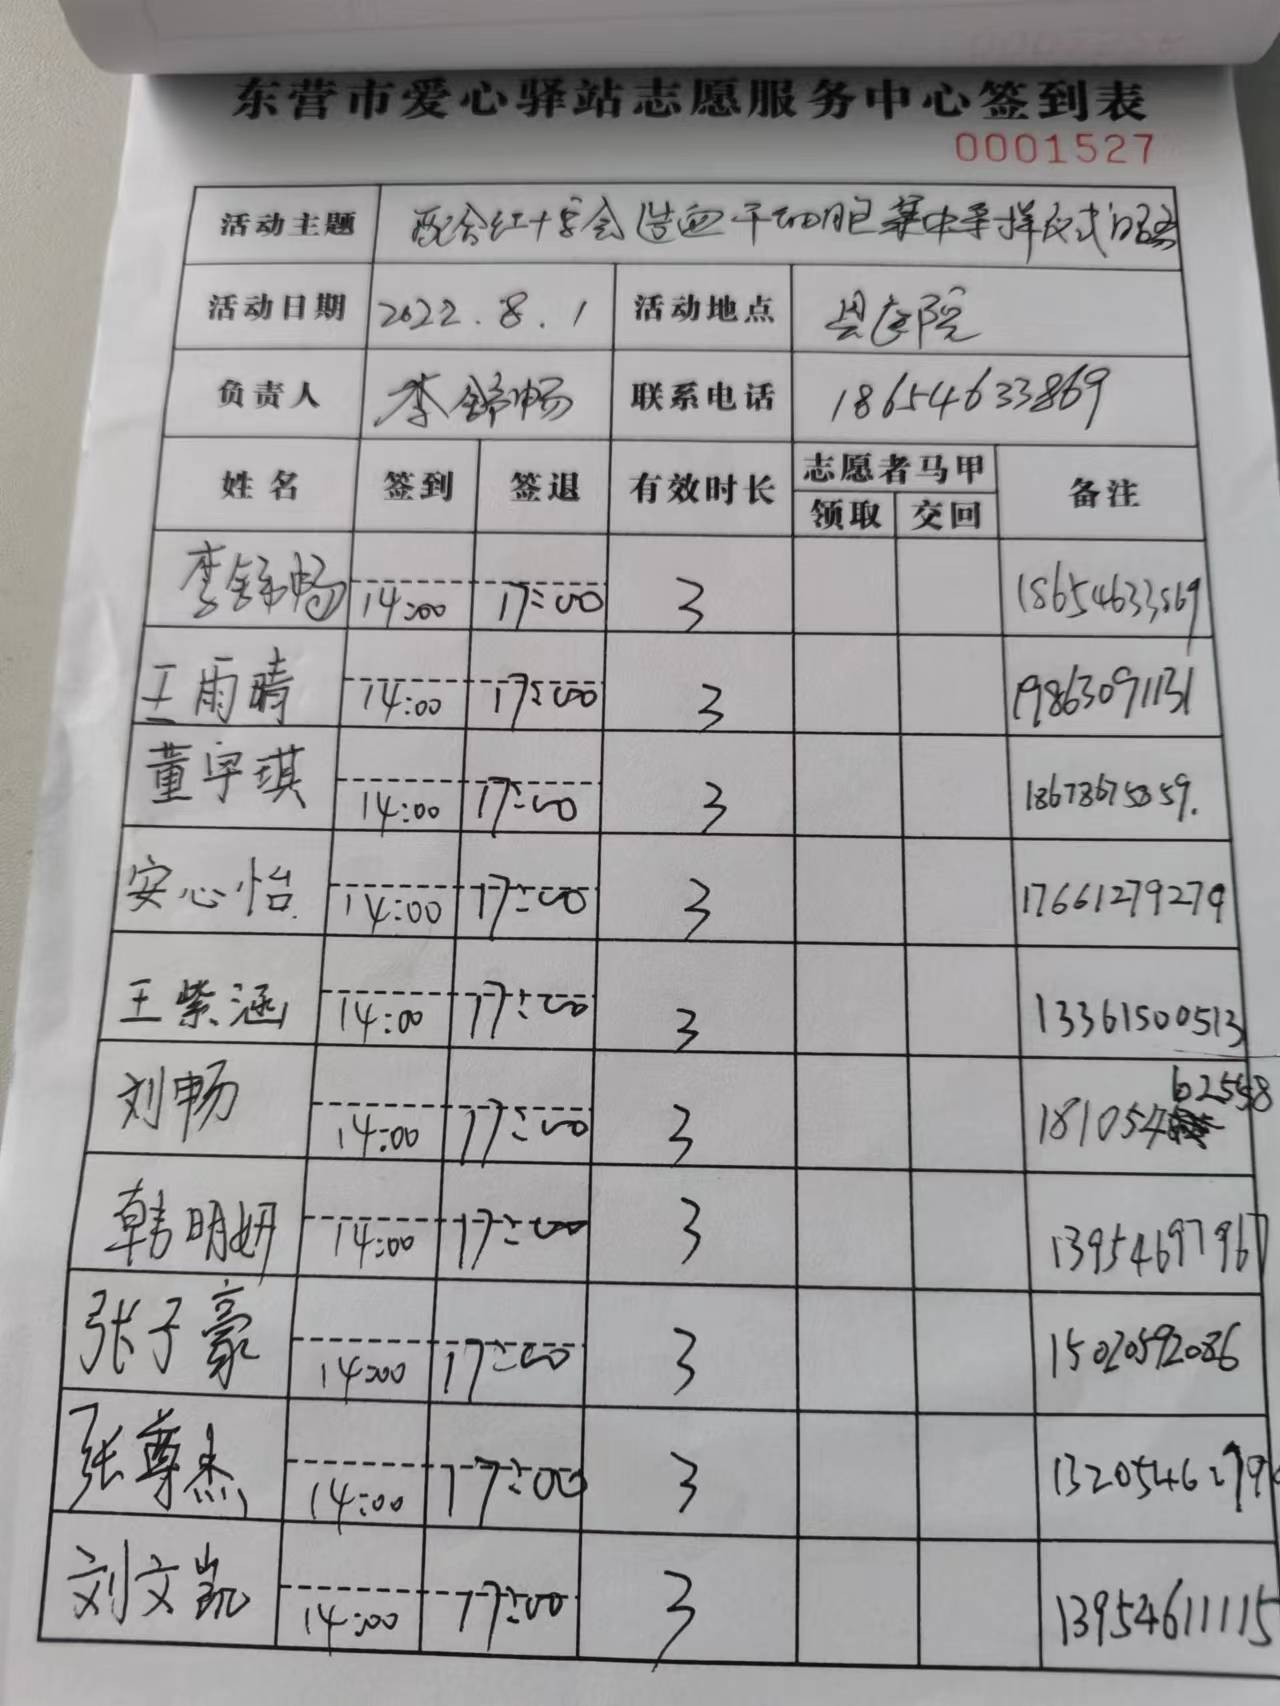 东营市爱心驿站志愿服务中心签到表
0001527
活动主题 配合红十字会造血干细胞集中采样仪式
活动日期 2022.8.1 活动地点 县医院
负责人 李锦畅 联系电话 18654633869
姓名 签到 签退 有效时长 志愿者马甲 备注
领取 交回
李锦畅 14:00 17:00 3 18654633869
王雨晴 14:00 17:00 3 19863091131
董宇琪 14:00 17:00 3 18678675859.
安心怡 14:00 17:00 3 17661279279
王紫涵 14:00 17:00 3 13361500513
刘畅 14:00 17:00 3 18105462558
韩明妍 14:00 17:00 3 13954697967
张子豪 14:00 17:00 3 15020592086
张尊杰 14:00 17:00 3
刘文凯 14:00 17:00 3 13954611115